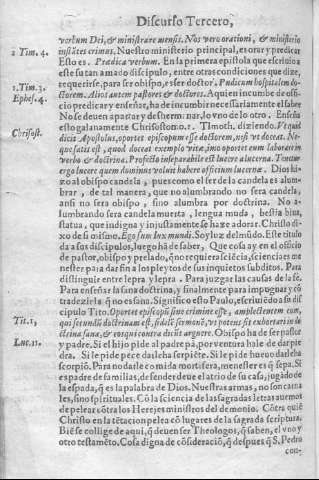 Discurso Tercero,
verbum Dei, & ministrare mensis. Nos vero orationi, & ministerio
2 Tim. 4. instātes erimus. Nuestro ministerio principal, es orar y predicar
Esto es. Prædica verbum. En la primera epistola que escriuio a
este su tan amado discipulo, entre otras condiciones que dize,
1. Tim. 3. se requierẽ, para ser obispo, es ser doctor. Pudicum hospitalem do-
Ephes. 4. ctorem. Alios autem pastores & doctores. A quien incumbe de offi-
cio predicar y enseñar, ha de incumbir necessariamente el saber
No se deuen apartar y deshermanar, lo vno de lo otro. Enseña
Chrisost. esto galanamente Chrisostomo. 1. Timoth. diziendo. Vt quid
dicis Apostolus, oportet episcopum esse doctorem, nosse vt doceat. Ne-
que satis est, quod doceat exemplo vitæ, imo oportet eum laborare in
verbo & doctrina. Profecto inseparabile est lucere a lucerna. Tenetur
ergo lucere quem dominus voluit habere officium lucernæ. Dios hi-
zo al obispo candela, y pues como el ser de la candela es alum-
brar, de tal manera, que no alumbrando no sera candela,
ansi no sera obispo, sino alumbra por doctrina. No a-
lumbrando sera candela muerta, lengua muda, bestia biua,
statua, que indigna y injustamente se haze adorar. Christo di-
xo de si mismo. Ego sum lux mundi. Soy luz del mũdo. Este titulo
da a sus discipulos, luego hā de saber, Que cosa ay en el officio
de pastor, obispo y prelado, q̃ no requiera sciẽcia, sciencia es me
nester para dar fin a los pleytos de sus inquietos subditos. Para
distinguir entre lepra y lepra. Para juzgar las causas de la fe.
Para enseñar la sana doctrina, y finalmente para impugnar y cō
tradezir la q̃ no es sana. Significo esto Paulo, escriuiẽdo a su dis
Tit. 1, cipulo Tito. Oportet episcopū sine crimine esse, amplectentem eum,
qui secundū doctrinam est, fidelē sermonē, vt potens sit exhortari in do
ctrina sana, & eos qui contradicūt arguere. Obispo ha de ser pastor
Luc. 11. y padre. Si el hijo pide al padre pā, por ventura hale de dar pie
dra. Si le pide pece darleha serpiẽte. Si le pide hueuo darleha
scorpiō. Para no darle comida mortifera, menester es q̃ sepa. Si
es padre de familias, defender deue el atrio de su casa, jugādo de
la espada, q̃ es la palabra de Dios. Nuestras armas, no son carna
les, sino spirituales. Cō la sciencia de las sagradas letras auemos
de pelear cōtra los Herejes ministros del demonio. Cōtra quiẽ
Christo en la tẽtacion peleo cō lugares de la sagrada scriptura.
Biẽ se collige de aqui, q̃ deuen ser Theologos, q̃ saben, el vno y
otro testamẽto. Cosa digna de cōsideraciō, q̃ despues q̃ S. Pedro
con-